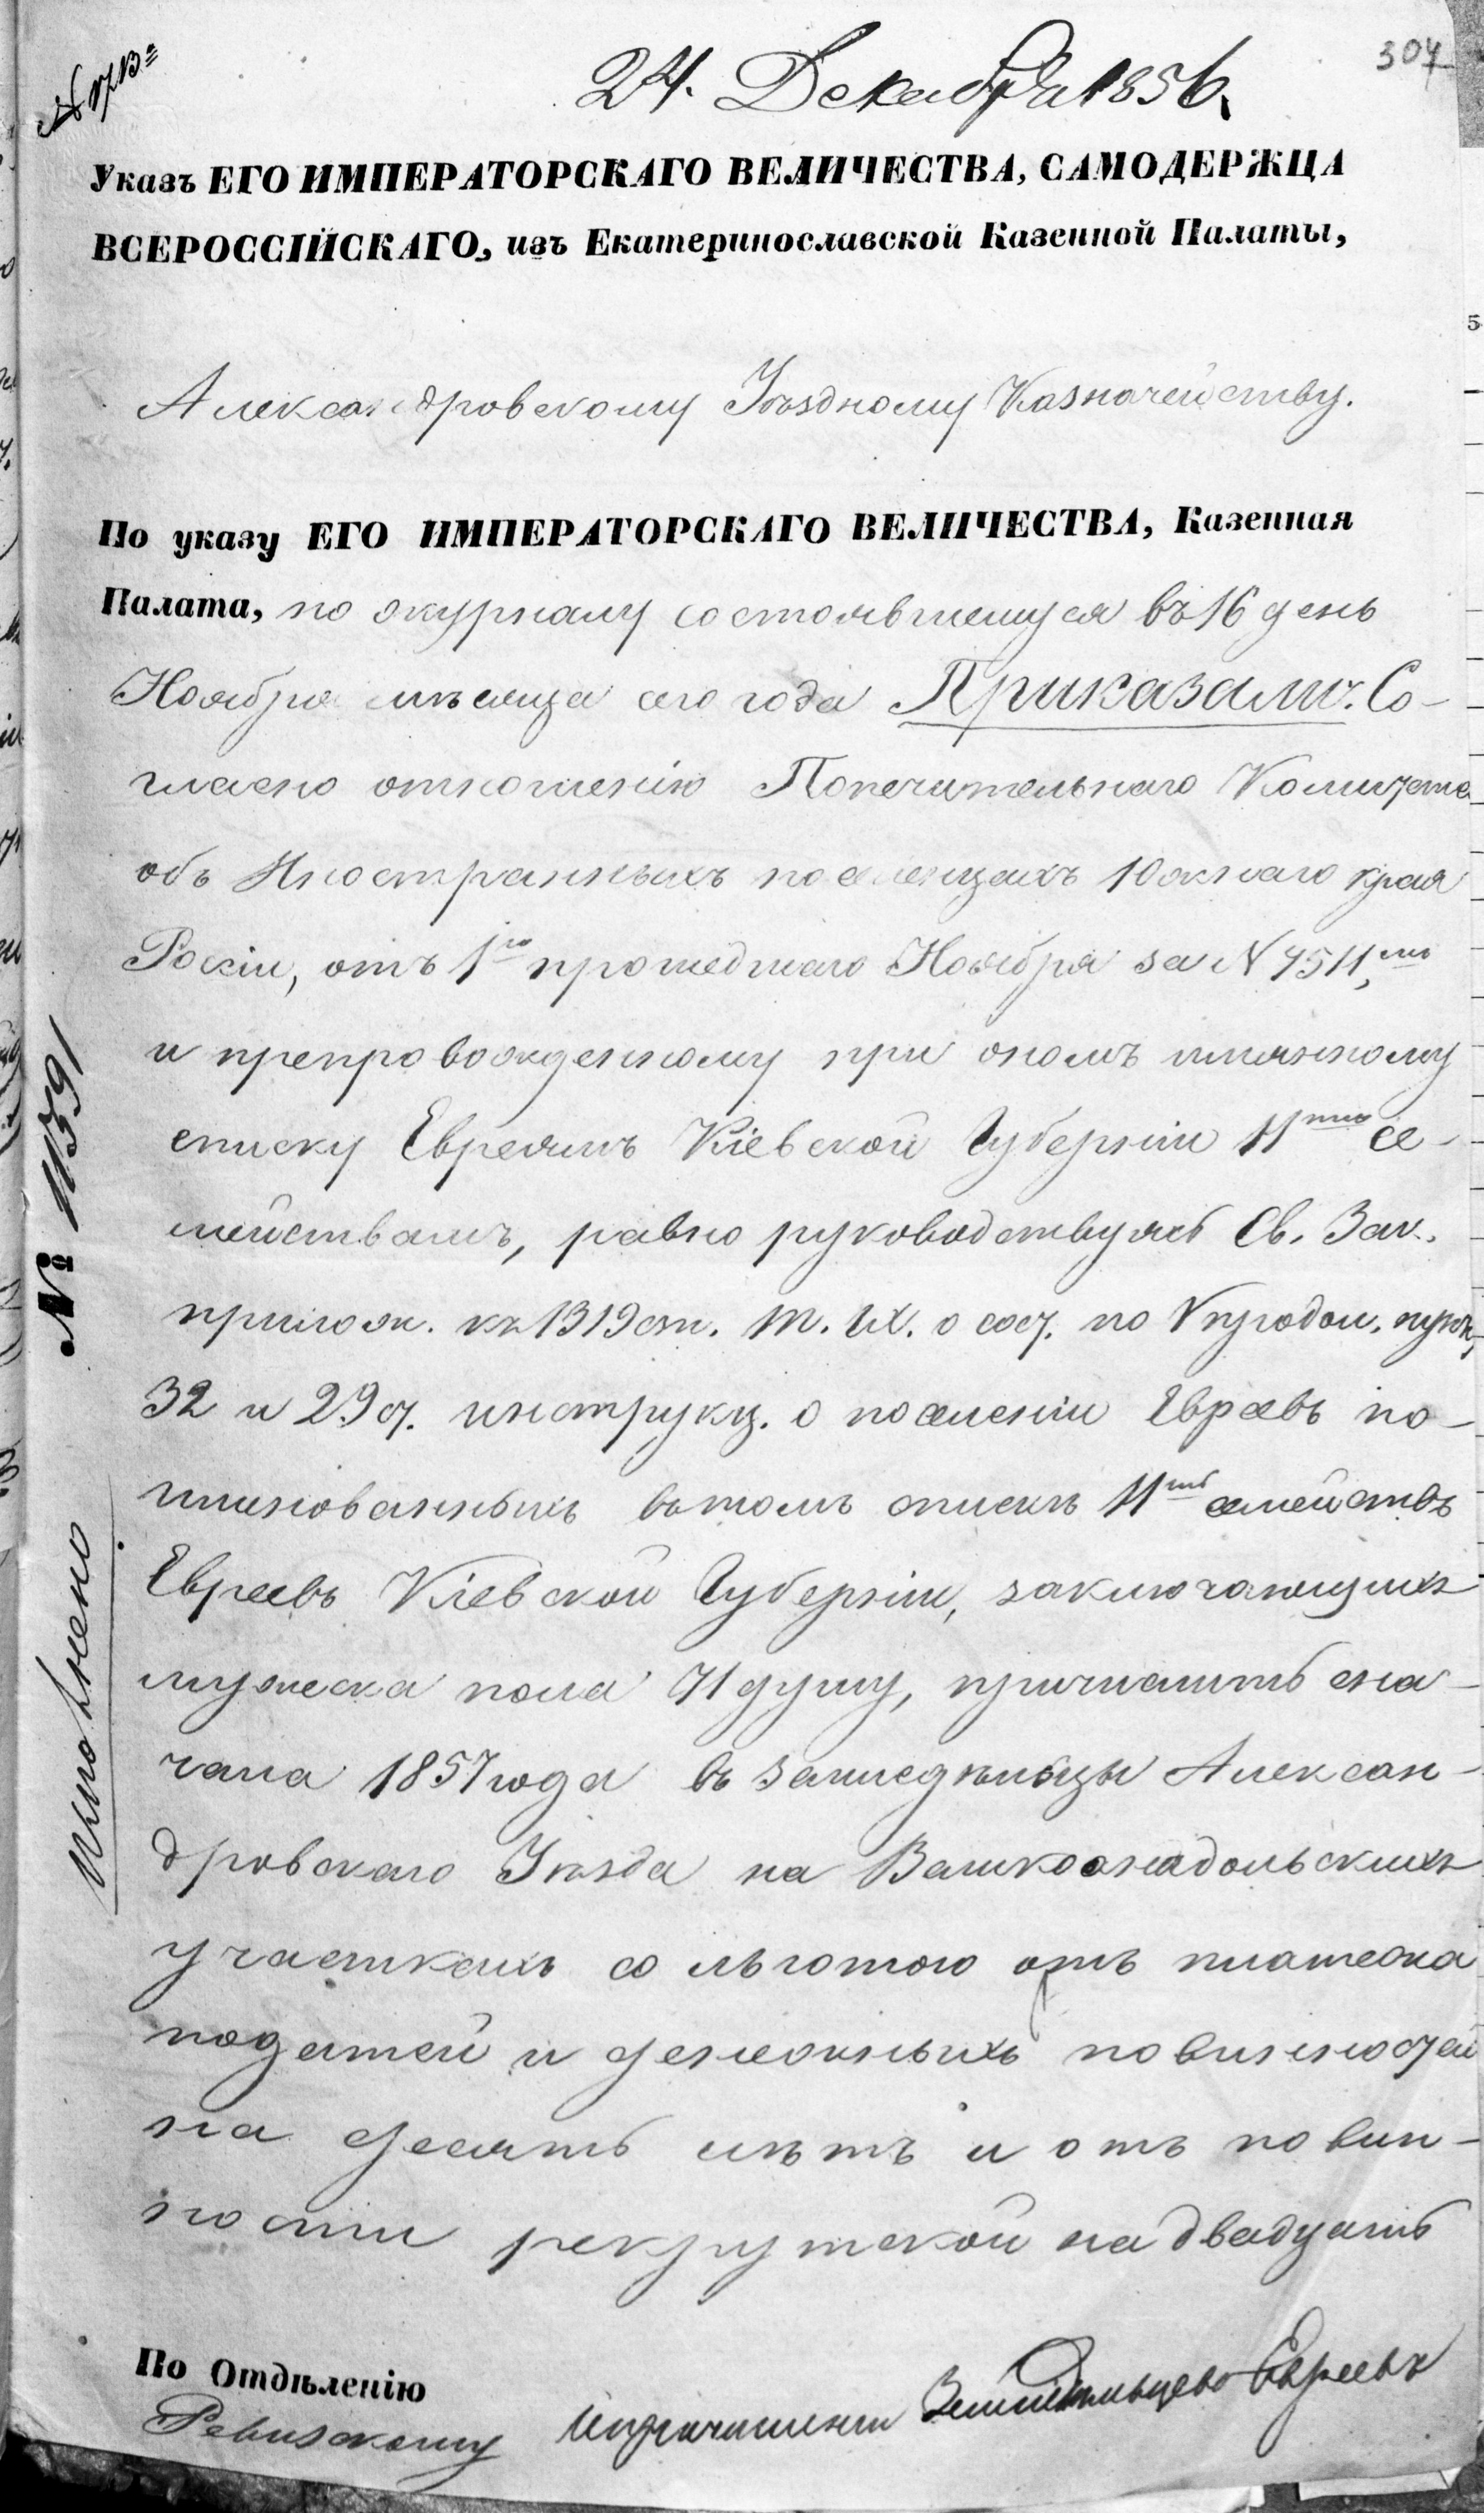 307
24. Декабря 1856.
Указъ ЕГО ИМПЕРАТОРСКАГО ВЕЛИЧЕСТВА, САМОДЕРЖЦА
ВСЕРОССІЙСКАГО, изъ Екатеринославской Казенной Палаты,
Александровскому Уѣздному Казначейству.
По указу ЕГО ИМПЕРАТОРСКАГО ВЕЛИЧЕСТВА, Казенная
Палата, по журналу состоявшемуся въ 16 день
Ноября мѣсяца сего года Приказали: Со-
гласно отношенію Попечительнаго Комитета
объ Иностранныхъ поселенцахъ Южнаго края
Росіи, отъ 1го прошедшаго Ноября за N 7511,мъ
и препровожденному при ономъ имянному
списку Евреямъ Кіевской Губерніи 11ти се-
мействамъ, равно руководствуясь Св. Зак.
прилож. къ 1319 ст. т. IX. о сост. по V продол. пунк,
32 и 29 ст. инструкц. о поселеніи Евреевъ по-
именованныхъ въ томъ спискѣ 11ть семействъ
Евреевъ Кіевской Губерніи, заключающихъ
мужеска пола 71 душу, причислить сна-
чала 1857 года въ земледѣльцы Алексан-
дровскаго Уѣзда на Велико­анадольскихъ
участкахъ со льготою отъ платежа
податей и денежныхъ повинностей
на десять лѣтъ и отъ повин-
ности рекрутской на двадцать
По Отдѣленію
Ревизскому
о причисленіи Земледѣльцевъ Евреевъ
№ 11391
Исполнено